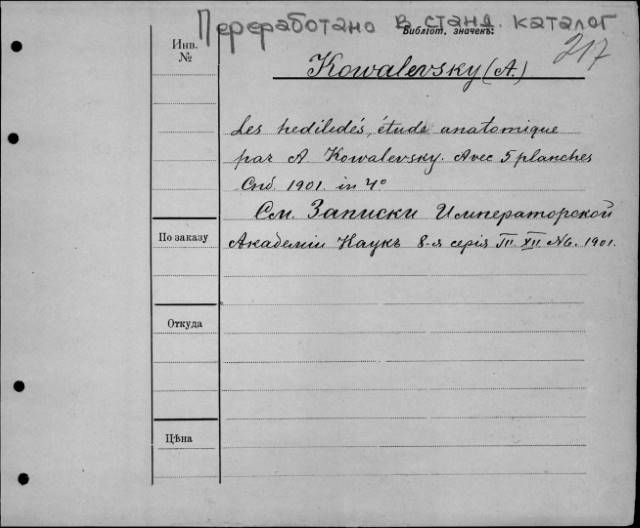 Переработано в станд. каталог
Инв. №
Библіот. значекъ:
217
Kowalevsky (A.)
Les hediledés, étude anatomique
par A Kowalevsky. Avec 5 planches
Спб. 1901. in 4°
См. Записки Императорской
По заказу
Академіи Наукъ 8-я серія Т. XII №6. 1901.
Откуда
Цѣна